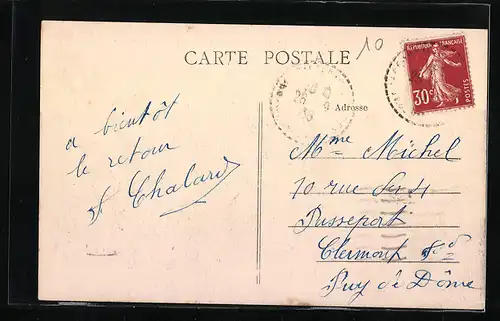 CARTE POSTALE
10
RÉPUBLIQUE FRANÇAISE
30c
POSTES
Adresse
a bientôt
le retour
Chalard
Mme Michel
10 rue des 4
Passeport
Clermont Fd
Puy de Dôme